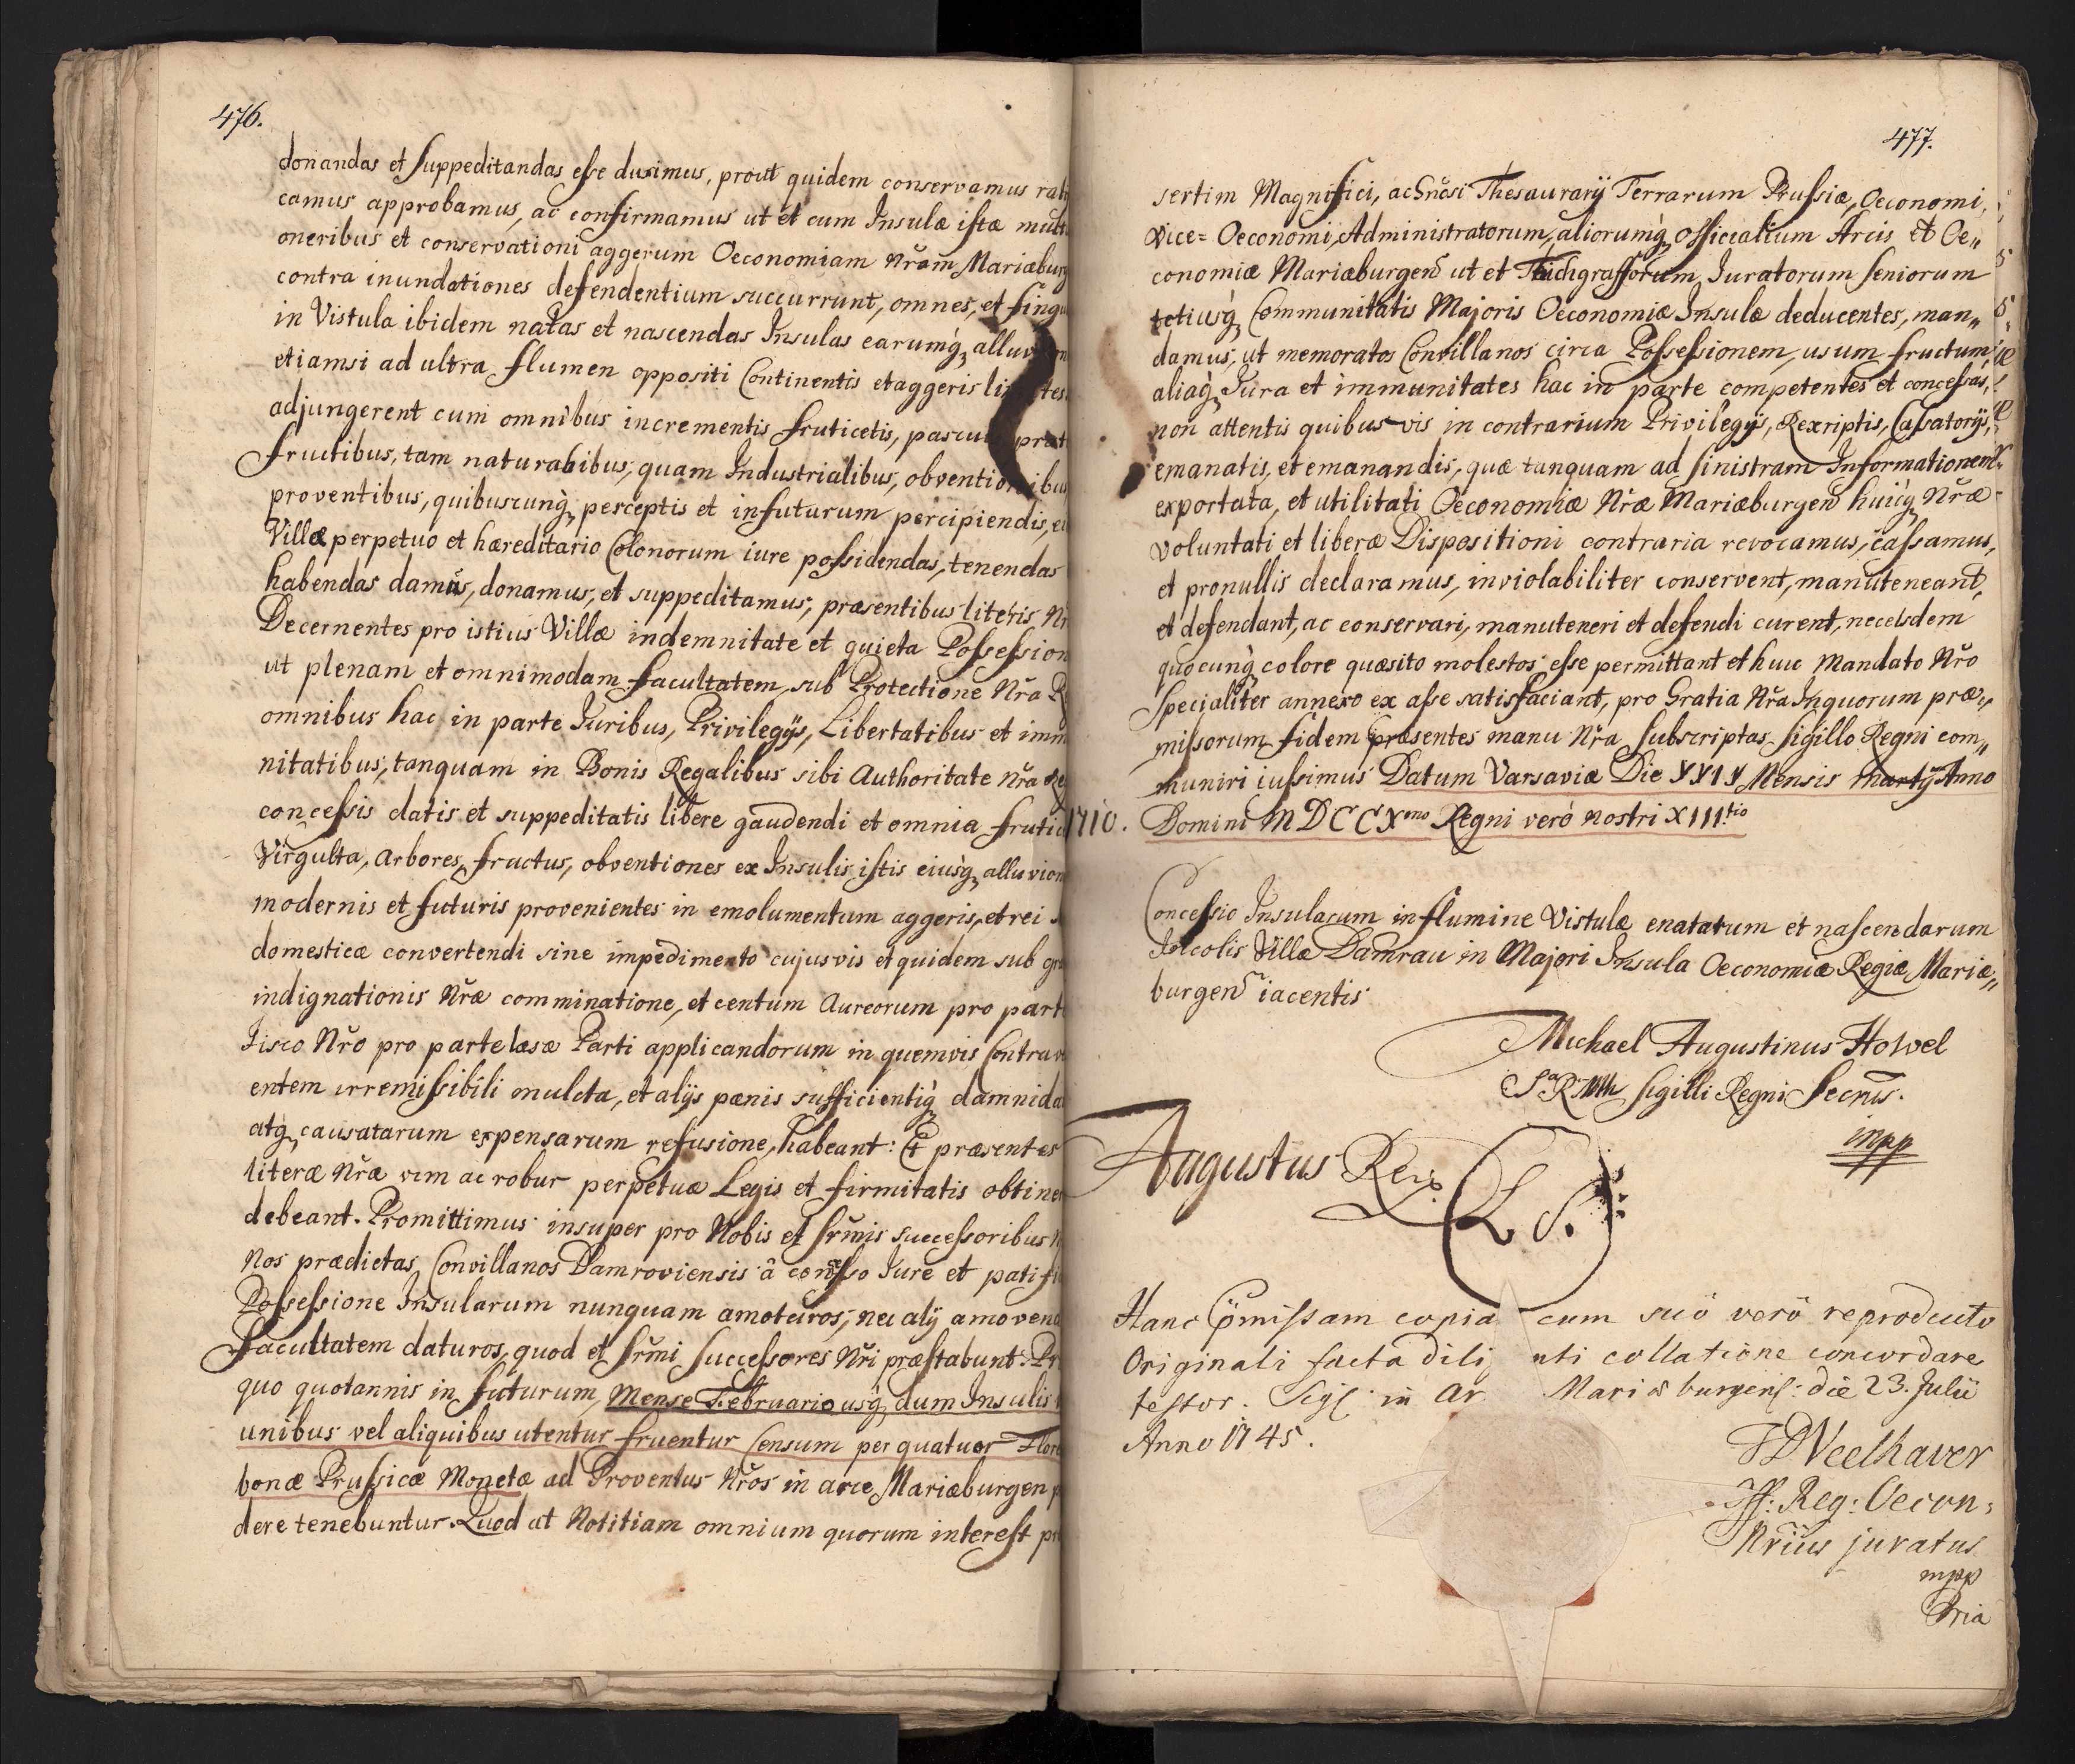 476.
donandas et suppeditandas esse duximus, prout quidem conservamus rati
camus approbamus, ac confirmamus ut et cum Insulæ istæ multis
oneribus et conservationi aggerum Oeconomiam Nr̃am Mariæburg
contra inundationes defendentium succurrunt, omnes, et singu
in Vistula ibidem natas et nascendas Insulas earumq̀₃ alluv
etiamsi ad ultra flumen oppositi Continentis et aggeris li tes
adjungerent cum omnibus incrementis fruticetis, pascuis prat
fructibus, tam naturabibus, quam Industrialibus, obventionibus
proventibus, quibuscunq̀₃ perceptis et in futurum percipiendis, ei
Villæ perpetuo et hæreditario Colonorum iure possidendas, tenendas
habendas damus, donamus, et suppeditamus; præsentibus literis Nr
Decernentes pro istius Villæ indemnitate et quieta Possession
ut plenam et omnimodam facultatem sub Protectione Nr̃a R
omnibus hac in parte Juribus, Privilegÿs, Libertatibus et imm
nitatibus, tanquam in Bonis Regalibus sibi Authoritate Nr̃a Re
concessis datis et suppeditatis libere gaudendi et omnia frutic
Virgulta, Arbores, fructus, obventiones ex Insulis istis eiusq̀₃ alluvion
modernis et futuris provenientes in emolumentum aggeris, et rei s
domesticæ convertendi sine impedimento cujusvis et quidem sub gra
indignationis Nr̃æ comminatione, et centum Aureorum pro parte
Fisco Nr̃o pro parte læsæ Parti applicandorum in quemvis Contrave
entem irremissibili mulcta, et alÿs pænis sufficientiq̀₃ damnida
atq̀₃ causatarum expensarum refusione, habeant: Et præsentes
literæ Nr̃æ vim ac robur perpetuæ Legis et firmitatis obtine
debeant. Promittimus insuper pro Nobis et Sr̃mis successoribus N
Nos prædictas Convillanos Damroviensis â concesso Jure et pacifi
Possessione Insularum nunquam amoturos, nec alÿ amovend
facultatem daturos, quod et Sr̃mi Successores Nr̃i præstabunt. Pr
quo quotannis in futurum Mense Februario usq̀₃ dum Insulis
unibus vel aliquibus utentur fruentur Censum per quatuor Flore
bonæ Prussicæ Monetæ ad Proventus Nr̃os in arce Mariæburgen p
dere tenebuntur. Quod ut Notitiam omnium quorum interest pr
477.
sertim Magnifici, ac Gn̄osi Thesaurarÿ Terrarum Prussiæ, Oeconomi,
Vice= Oeconomi, Administratorum, aliorumq̀₃ Officialium Arcis et Oe„
conomiæ Mariæburgen̄ ut et Teichgrafforum Juratorum Seniorum
totiusq̀₃ Communitatis Majoris Oeconomiæ Insulæ deducentes, man„
damus, ut memoratos Convillanos circa Possessionem, usum fructum
aliaq̀₃ Jura et immunitates hac in parte competentes et concessas,
non attentis quibusvis in contrarium Privilegÿs, Rexriptis, Cassatorÿs,
emanatis, et emanandis, quæ tanquam ad sinistram Informationem
exportata, et utilitati Oeconomiæ Nr̃æ Mariæburgen̄ huicq̀₃ Nr̃æ
voluntati et liberæ Dispositioni contraria revocamus, cassamus,
et pro nullis declaramus, inviolabiliter conservent, manuteneant,
et defendant, ac conservari, manuteneri et defendi curent, nec eisdem
quocunq̀₃ colore quæsito molestos esse permittant et huic Mandato Nr̃o
Specialiter annexo ex asse satisfaciant, pro Gratia Nr̃a Inquorum præ„
missorum fidem præsentes manu Nr̃a subscriptas Sigillo Regni com„
muniri iussimus Datum Varsaviæ Die XXIX Mensis Martÿ Anno
1710. Domini MDCCXmo Regni verò nostri XIII.tio
Concessio Insularum in flumine Vistulæ enatarum et nascendarum
Incolis Villæ Damrau in Majori Insula Oeconomiæ Regiæ Mariæ„
burgen̄ iacentis
Michael Augustinus Howel
S.R.Mtis Sigilli Regni Secr̄ius.
mpp
Augustus Rex
L. S.
Hanc p̄missam copia cum suô verô reproducto
Originali facta dili nti collatione concordare
testor. Sigl in Ar Mariæburgens: die 23. Julii
Anno 1745.
Veelhaver
Jff: Reg: Oecon:
Nr̄ius juratus
mpp